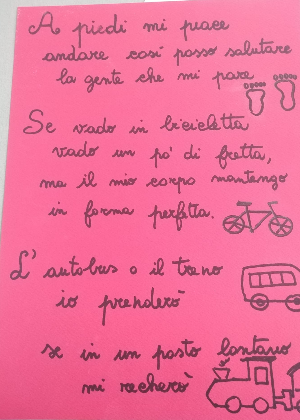 A piedi mi piace
andare così posso salutare
la gente che mi pare
Se vado in bicicletta
vado un po' di fretta,
ma il mio corpo mantengo
in forma perfetta.
L' autobus o il treno
io prenderò
se in un posto lontano
mi recherò